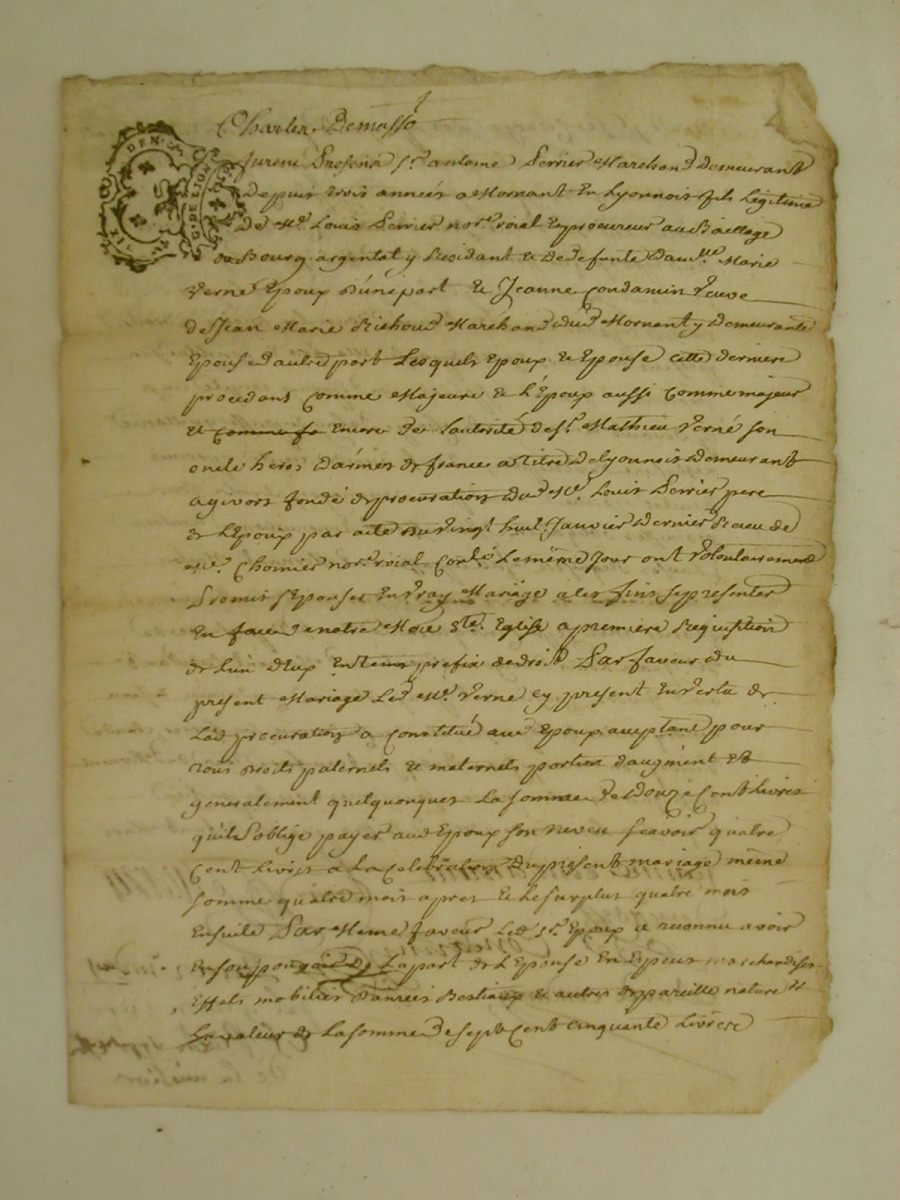 Charles Demasso
furent presens sr. antoine Perrier Marchand demeurant
depuis trois années a Mornant en Lyonnois fils Légitime
de Me. Louis Perrier nore. roial et procureur au Baillage
de Bourg argental y Residant et de defunte damlle Marie
verne Epoux d'une part Et Jeanne Condamin veuve
de Jean Marie Richoud Marchand dud Mornant y demeurante
Epouse d'autre part Lesquels Epoux et Epouse cette derniere
procedant comme Majeure et L'Epoux aussi Comme majeur
et comme fe encore de L'autorité de sr. Mathieu verné son
oncle heros d'armes de france a titre de Lyonnois demeurant
a givors fondé de procuration dud Me. Louis Perrier pere
de L'Epoux par acte du vingt huit Janvier dernier Receu de
Me. Chomier nore. roial Conlé Le même Jour ont volontairement
Promis s'Epouser en vray Mariage a ces fins se presenter
en face de notre Mere Ste. Eglise a premiere Requisition
de L'un d'Eux en tems prefix de droit Par faveur du
present Mariage Led Me. verne cy present en vertu de
Lad procuration a Constitué aud Epoux acceptant pour
tous droits paternels et maternels portion d'augment et
generalement quelquonques La somme de douze Cent Livres
qu'il s'oblige payer aud Epoux son neveu scavoir quatre
Cent Livres a La Celebration du present mariage même
somme quatre mois apres et Le surplus quatre mois
ensuite Par Meme faveur Led sr. Epoux a reconnu avoir
en son pouvoir de La part de L'Epouse en especes marchandises
Effets mobilier danrées Bestiaux et autres de pareille nature et
La valeur de La somme de sept Cent cinquante Livres